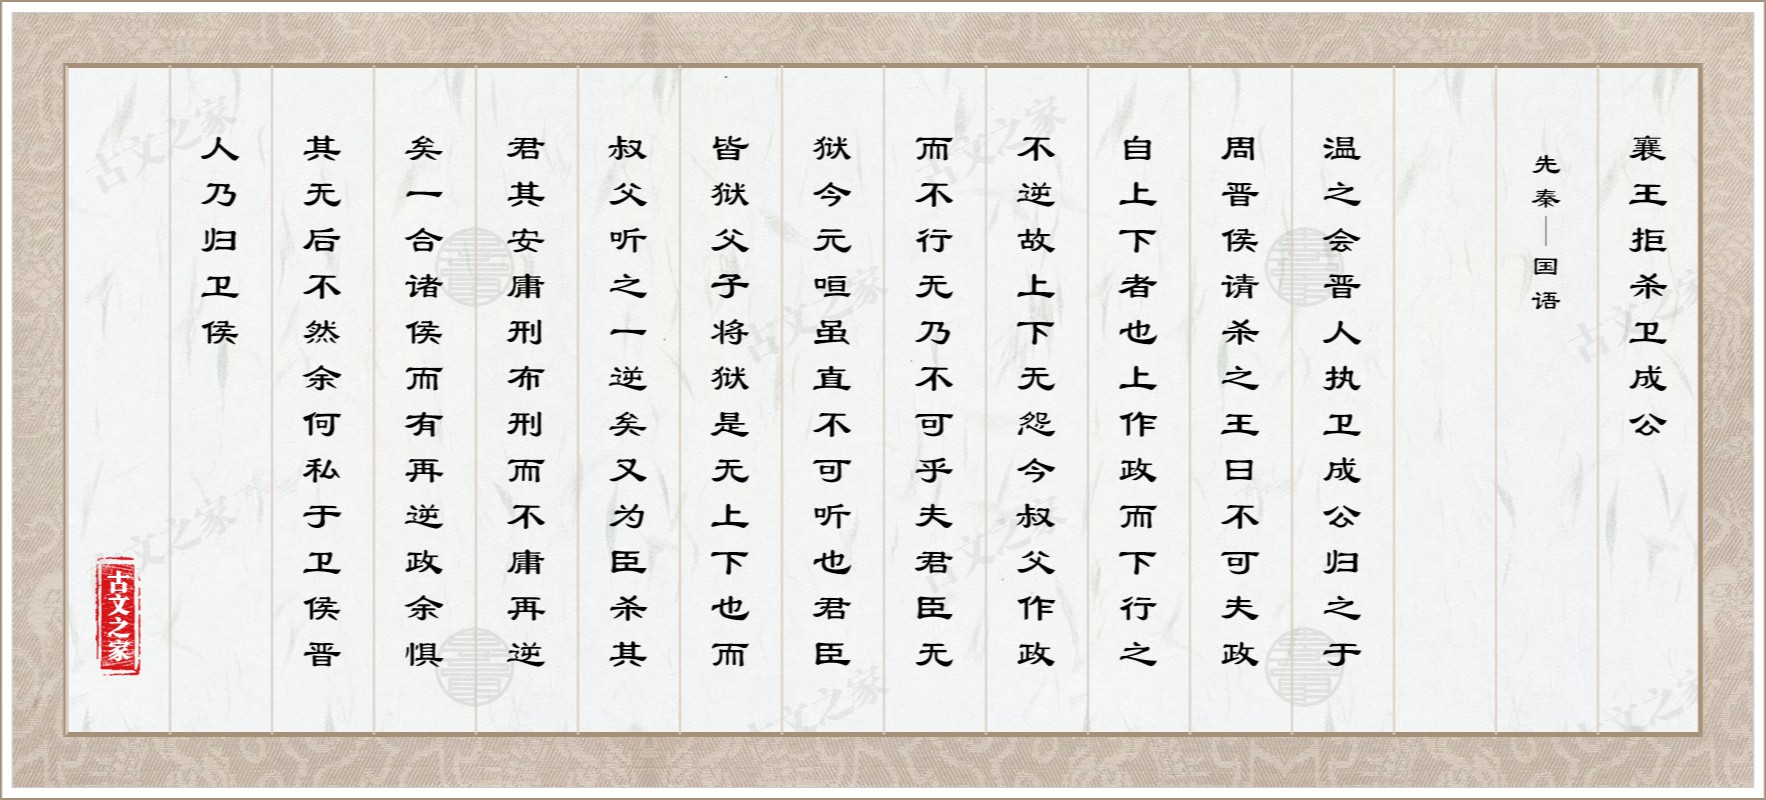 襄王拒杀卫成公
先秦—国语
温之会晋人执卫成公归之于
周晋侯请杀之王曰不可夫政
自上下者也上作政而下行之
不逆故上下无怨今叔父作政
而不行无乃不可乎夫君臣无
狱今元咺虽直不可听也君臣
皆狱父子将狱是无上下也而
叔父听之一逆矣又为臣杀其
君其安庸刑布刑而不庸再逆
矣一合诸侯而有再逆政余惧
其无后不然余何私于卫侯晋
人乃归卫侯
古文之家